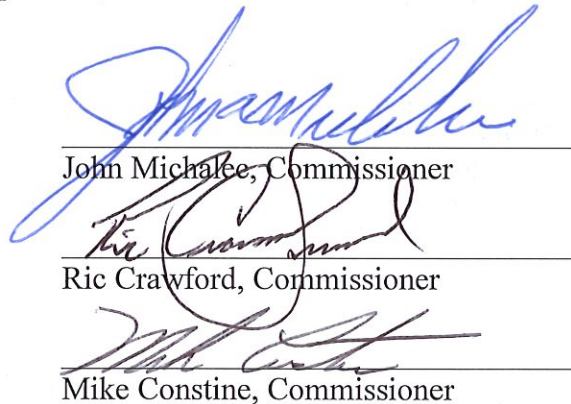 John Michalec, Commissioner
Ric Crawford, Commissioner
Mike Constine, Commissioner